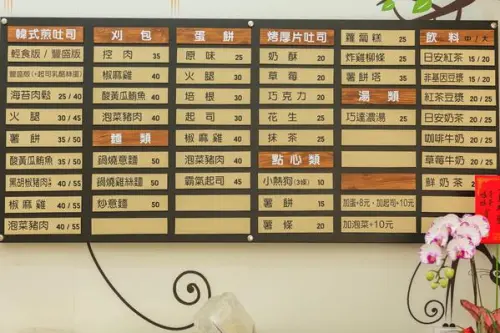 韓式煎吐司
輕食版 / 豐盛版
豐盛版(小起司乳酪絲蛋)
海苔肉鬆 25 / 40
火腿 30 / 45
薯餅 35 / 50
酸黃瓜鮪魚 35 / 50
黑胡椒豬肉 40 / 55
椒麻雞 40 / 55
泡菜豬肉 40 / 55
刈包
控肉 35
椒麻雞 40
酸黃瓜鮪魚 40
泡菜豬肉 40
麵類
鍋燒意麵 50
鍋燒雞絲麵 50
炒意麵 50
蛋餅
原味 25
火腿 30
培根 30
起司 30
椒麻雞 40
泡菜豬肉 40
霸氣起司 45
烤厚片吐司
奶酥 20
草莓 20
巧克力 20
花生 25
抹茶 25
點心類
小熱狗(3條) 10
薯餅 15
薯條 20
蘿蔔糕 25
炸雞柳條 25
薯餅塔 35
湯類
巧達濃湯 25
加蛋+8元、加起司+10元
加泡菜+10元
飲料 中 / 大
日安紅茶 15 / 20
非基因豆漿 15 / 20
紅茶豆漿 20 / 25
日安奶茶 20 / 25
咖啡牛奶 20 / 25
草莓牛奶 20 / 25
鮮奶茶